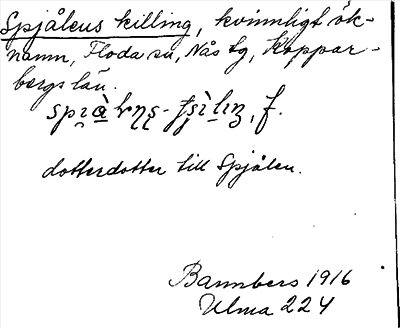 Spjålens killing, kvinnligt ök-
namn, Floda sn, Nås tg, Koppar-
bergs län.
dotterdotter till Spjålen.
Bannbers 1916
Ulma 224